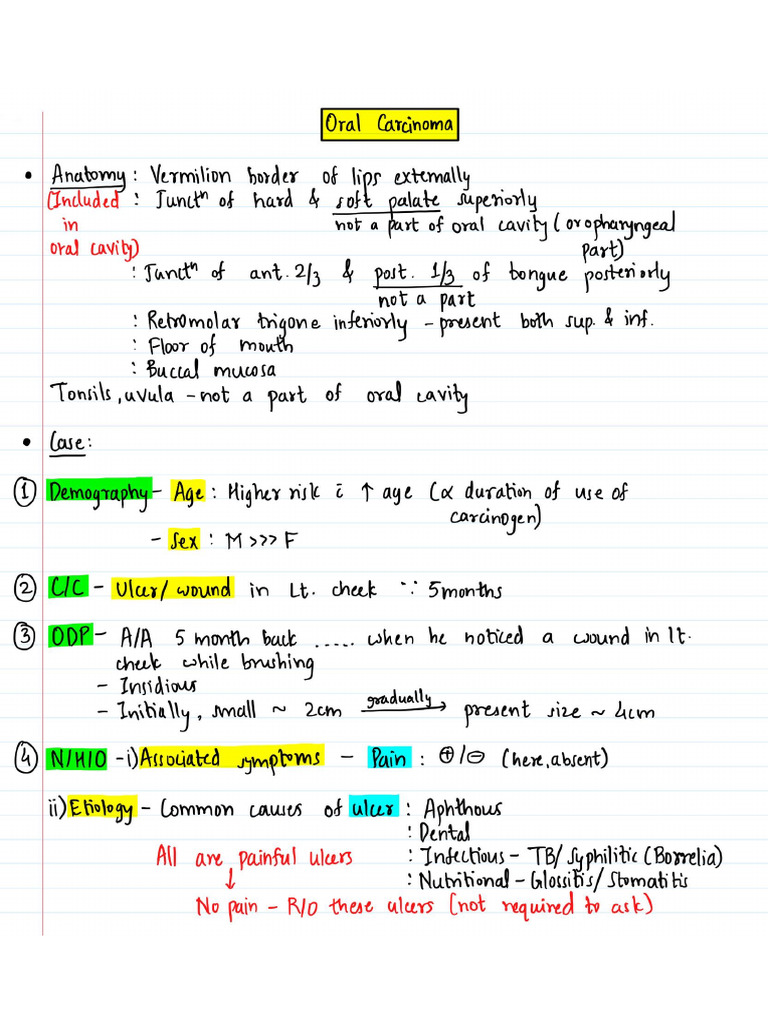 Oral Carcinoma
• Anatomy : Vermilion border of lips externally
(Included : Junctⁿ of hard & soft palate superiorly
in not a part of oral cavity (oropharyngeal
oral cavity) part)
: Junctⁿ of ant. 2/3 & post. 1/3 of tongue posteriorly
not a part
: Retromolar trigone inferiorly - present both sup. & inf.
: Floor of mouth
: Buccal mucosa
Tonsils, uvula - not a part of oral cavity
• Case:
① Demography - Age : Higher risk c̄ ↑ age (∝ duration of use of
carcinogen)
- Sex : M >>> F
② C/C - Ulcer/ wound in Lt. cheek ∵ 5 months
③ ODP - A/A 5 month back ..... when he noticed a wound in lt.
cheek while brushing
- Insidious
- Initially, small ~ 2cm gradually → present size ~ 4cm
④ N/H/O - i) Associated symptoms - Pain : ⊕/⊖ (here, absent)
ii) Etiology - Common causes of ulcer : Aphthous
: Dental
All are painful ulcers : Infectious - TB/ Syphilitic (Borrelia)
↓ : Nutritional - Glossitis/ Stomatitis
No pain - R/O these ulcers (not required to ask)